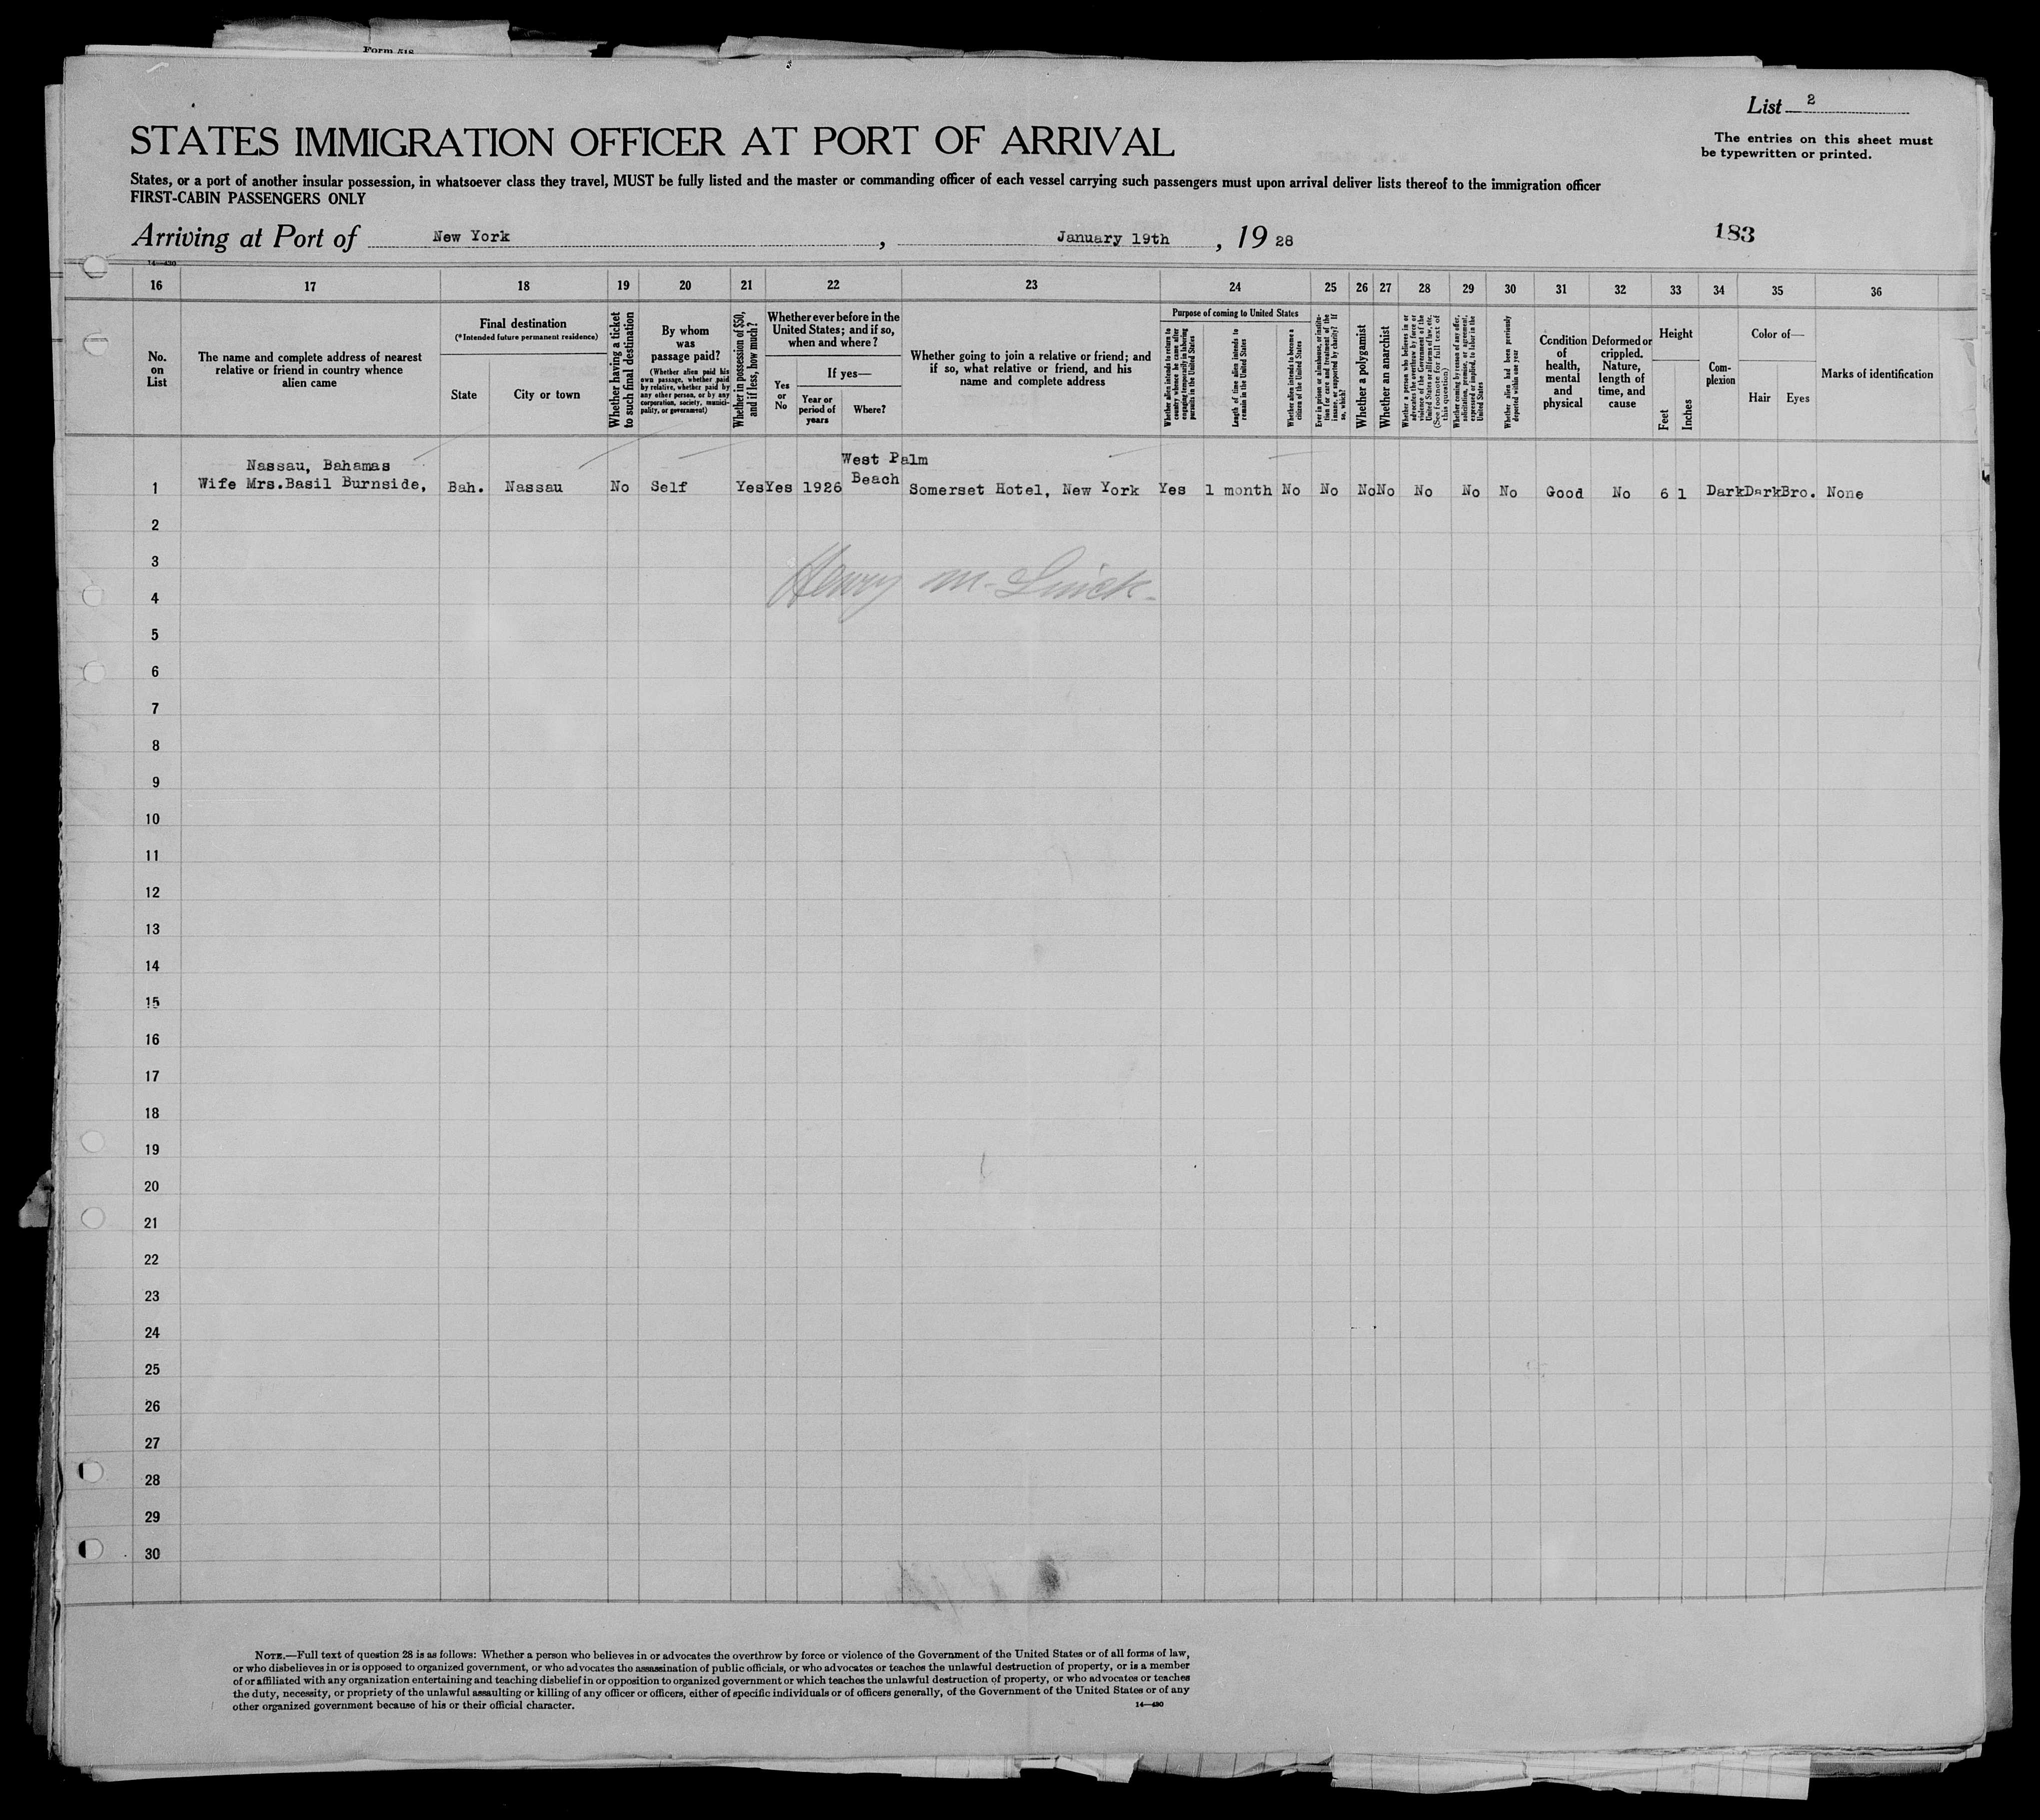 Form 518
List 2
STATES IMMIGRATION OFFICER AT PORT OF ARRIVAL
The entries on this sheet must
be typewritten or printed.
States, or a port of another insular possession, in whatsoever class they travel, MUST be fully listed and the master or commanding officer of each vessel carrying such passengers must upon arrival deliver lists thereof to the immigration officer
FIRST-CABIN PASSENGERS ONLY
Arriving at Port of New York, January 19th, 19 28
183
14—430
16 17 18 19 20 21 22 23 24 25 26 27 28 29 30 31 32 33 34 35 36
No. on List
The name and complete address of nearest
relative or friend in country whence
alien came
Final destination
(*Intended future permanent residence)
State
City or town
Whether having a ticket
to such final destination
By whom
was
passage paid?
(Whether alien paid his
own passage, whether paid
by relative, whether paid by
any other person, or by any
corporation, society, munici-
pality, or government)
Whether in possession of $50,
and if less, how much?
Whether ever before in the
United States; and if so,
when and where?
Yes
or
No
If yes—
Year or
period of
years
Where?
Whether going to join a relative or friend; and
if so, what relative or friend, and his
name and complete address
Purpose of coming to United States
Whether alien intends to return to
country whence he came after
engaging temporarily in laboring
pursuits in the United States
Length of time alien intends to
remain in the United States
Whether alien intends to become a
citizen of the United States
Ever in prison or almshouse, or institu-
tion for care and treatment of the
insane, or supported by charity? If
so, which?
Whether a polygamist
Whether an anarchist
Whether a person who believes in or
advocates the overthrow by force or
violence of the Government of the
United States or all forms of law, etc.
(See footnote for full text of
this question)
Whether coming by reason of any offer,
solicitation, promise, or agreement,
expressed or implied, to labor in the
United States
Whether alien had been previously
deported within one year
Condition
of
health,
mental
and
physical
Deformed or
crippled.
Nature,
length of
time, and
cause
Height
Feet
Inches
Com-
plexion
Color of—
Hair
Eyes
Marks of identification
Nassau, Bahamas
West Palm
1 Wife Mrs.Basil Burnside, Bah. Nassau No Self Yes Yes 1926 Beach Somerset Hotel, New York Yes 1 month No No No No No No No Good No 6 1 Dark Dark Bro. None
2
3
Henry M.
4
5
6
7
8
9
10
11
12
13
14
15
16
17
18
19
20
21
22
23
24
25
26
27
28
29
30
NOTE.—Full text of question 28 is as follows: Whether a person who believes in or advocates the overthrow by force or violence of the Government of the United States or of all forms of law,
or who disbelieves in or is opposed to organized government, or who advocates the assassination of public officials, or who advocates or teaches the unlawful destruction of property, or is a member
of or affiliated with any organization entertaining and teaching disbelief in or opposition to organized government or which teaches the unlawful destruction of property, or who advocates or teaches
the duty, necessity, or propriety of the unlawful assaulting or killing of any officer or officers, either of specific individuals or of officers generally, of the Government of the United States or of any
other organized government because of his or their official character.
14—430